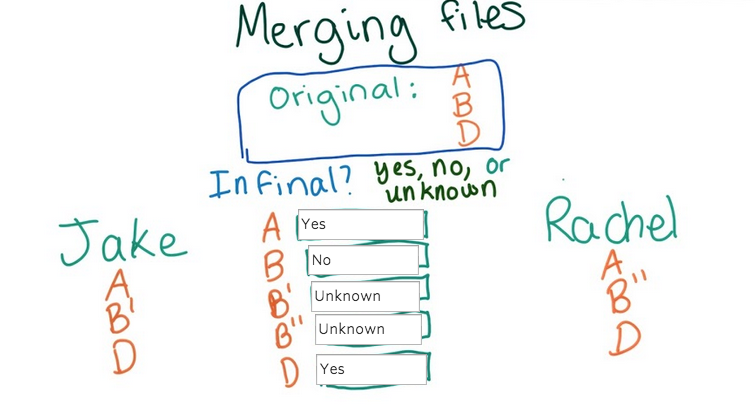 Merging files
Original: A
B
D
In final? yes, no, or
unknown
Jake
A
B'
D
A Yes
B No
B' Unknown
B" Unknown
D Yes
Rachel
A
B"
D